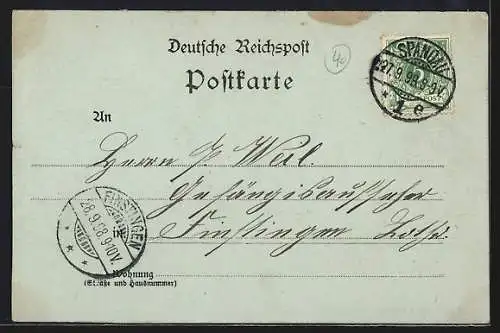 Deutsche Reichspost
Postkarte
40
SPANDAU
27.9.98.9-10V.
* 1 e
5
An
Herrn P. Weil
Gefängisaufseher
FINSTINGEN
28.9.98.9-10V.
* * *
in Finstingen Lothr.
Wohnung
(Straße und Hausnummer)